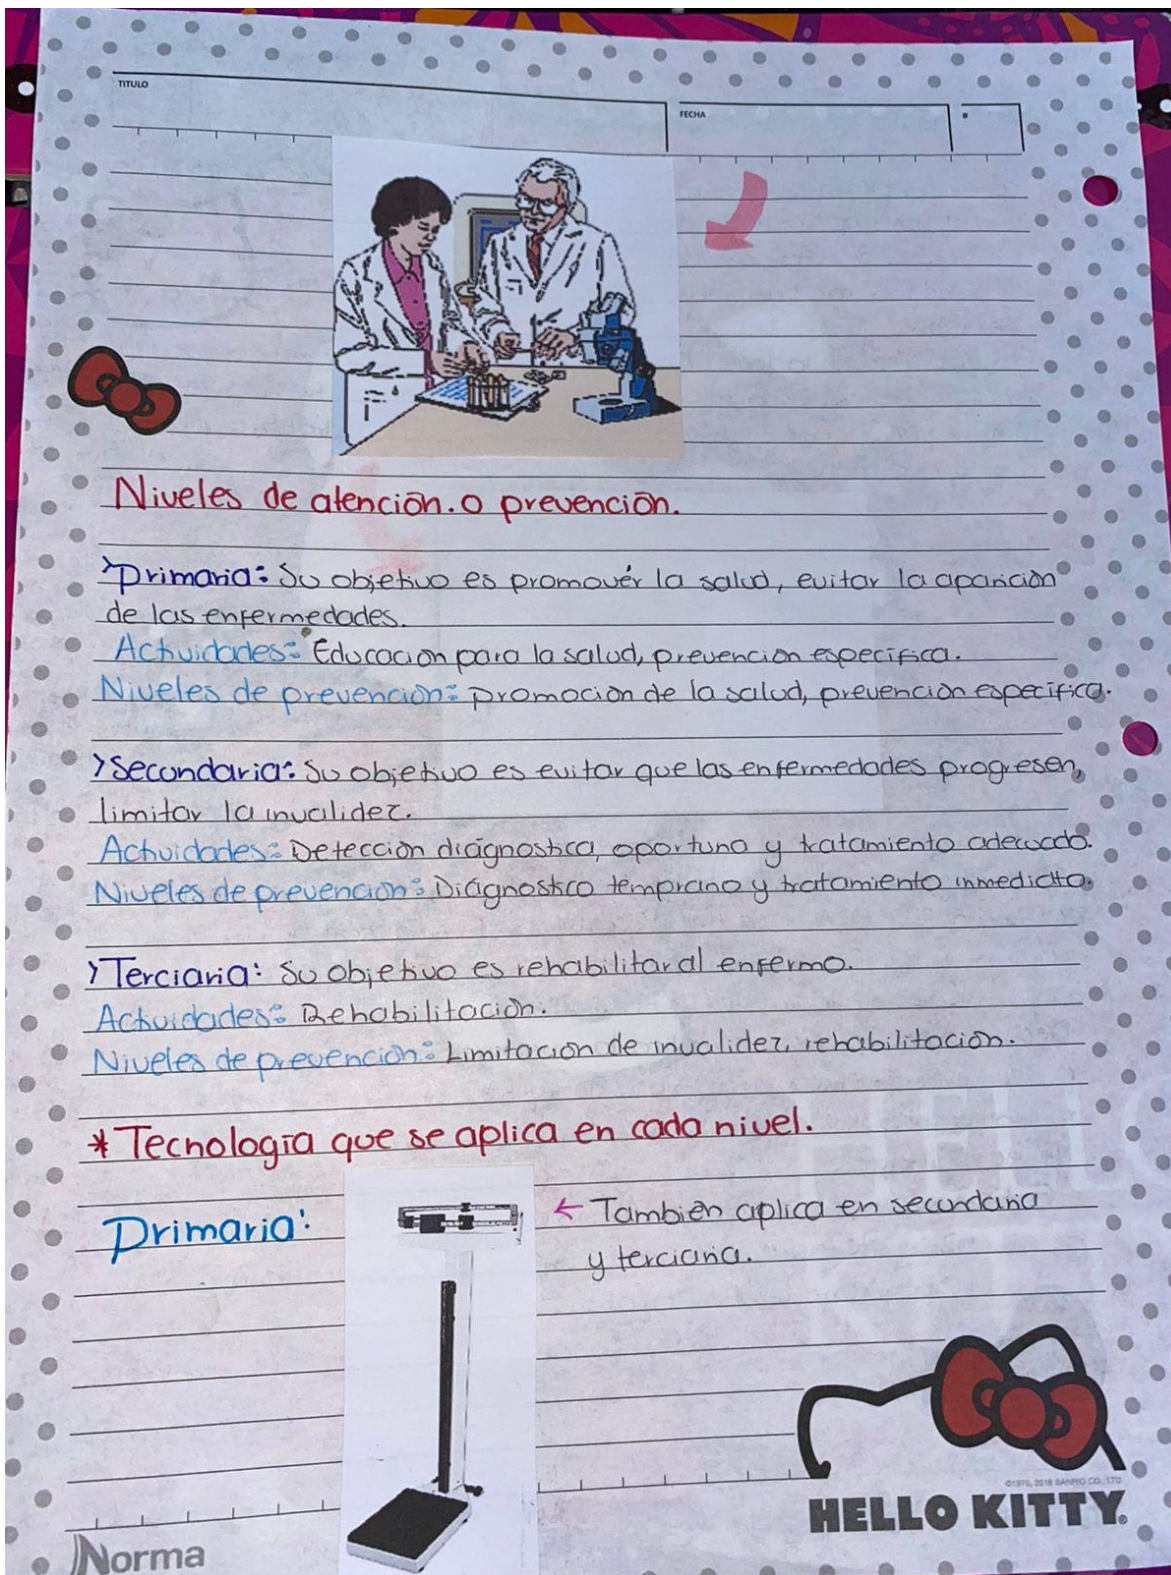 TITULO
FECHA
Niveles de atención. o prevención.
>Primaria: Su objetivo es promovér la salud, evitar la aparición
de las enfermedades.
Actividades: Educación para la salud, prevención especifica.
Niveles de prevención: promoción de la salud, prevención especifica.
>Secundaria: Su objetivo es evitar que las enfermedades progresen,
limitar la invalidez.
Actividades: Detección diágnostica, oportuna y tratamiento adecuado.
Niveles de prevención: Diágnostico temprano y tratamiento inmediato.
>Terciaria: Su objetivo es rehabilitar al enfermo.
Actividades: Rehabilitación.
Niveles de prevención: Limitación de invalidez, rehabilitación.
* Tecnología que se aplica en cada nivel.
Primaria:
← También aplica en secundaria
y terciaria.
©1976, 2018 SANRIO CO., LTD.
HELLO KITTY.
Norma